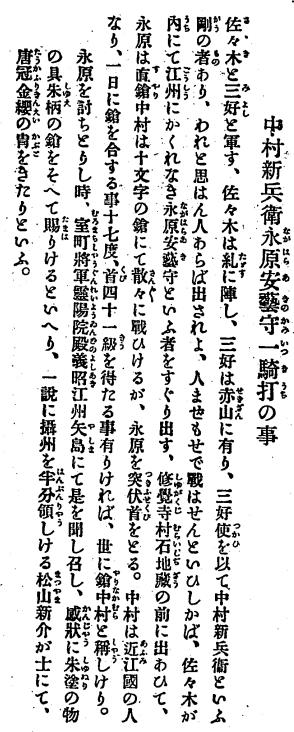 中村新兵衞永原安藝守一騎打の事
佐々木と三好と軍す、佐々木は糺に陣し、三好は赤山に有り、三好使を以て中村新兵衞といふ
剛の者あり、われと思はん人あらば出されよ、人ませもせで戰はせんといひしかば、佐々木が
內にて江州にかくれなき永原安藝守といふ者をすぐり出す、修覺寺村石地藏の前に出あひて、
永原は直鎗中村は十文字の鎗にて散々に戰ひけるが、永原を突伏首をとる。中村は近江國の人
なり、一日に鎗を合する事十七度、首四十一級を得たる事有りければ、世に鎗中村と稱しけり。
永原を討とりし時、室町將軍靈陽院殿義昭江州矢島にて是を聞し召し、感狀に朱塗の物
の具朱柄の鎗をそへて賜りけるといへり、一說に攝州を半分領しける松山新介が士にて、
唐冠金纓の冑をきたりといふ。